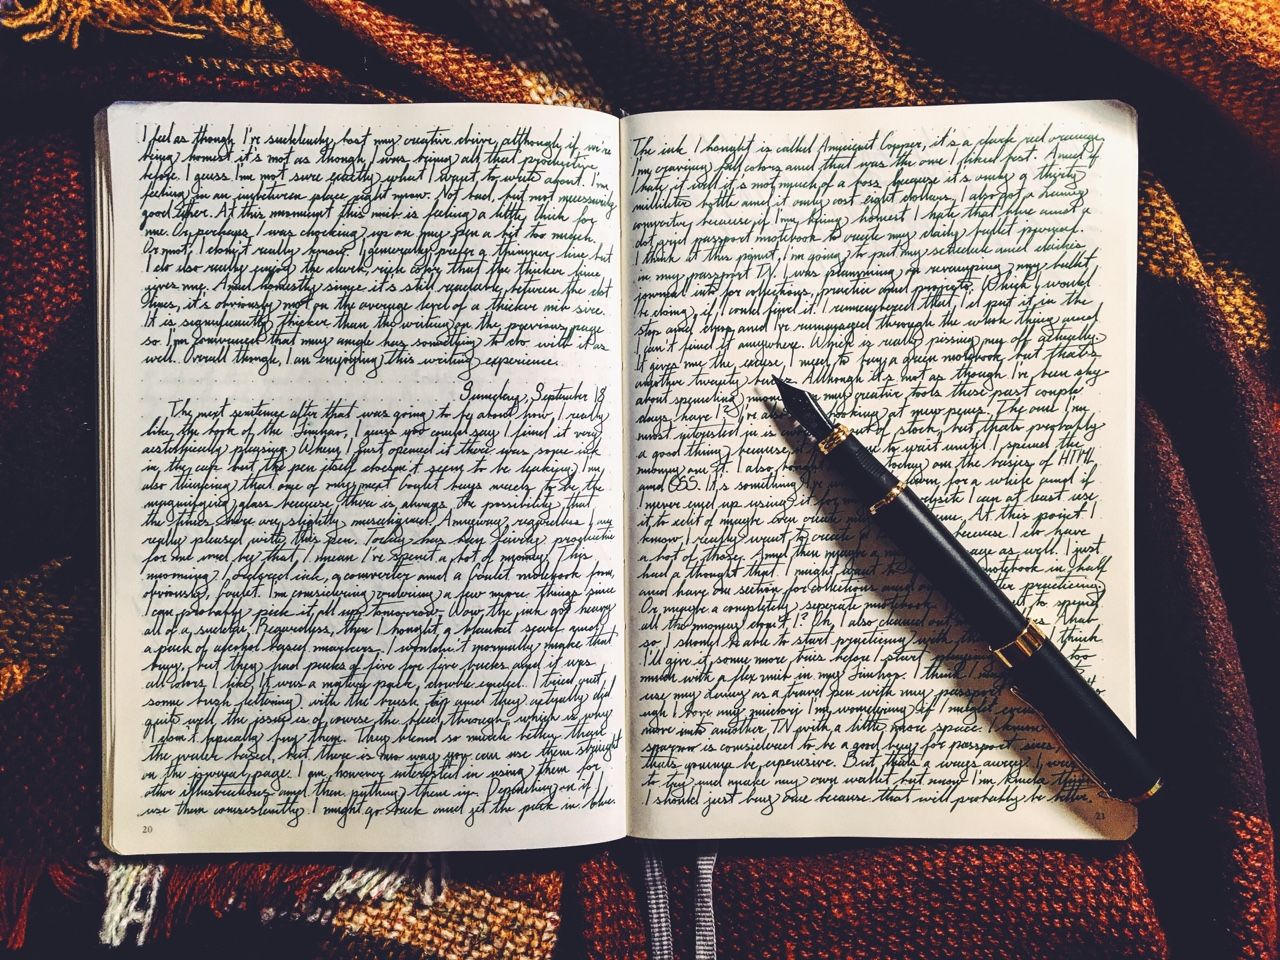 I feel as though I've suddenly lost my creative drive, although if we're
being honest it's not as though I was being all that productive
before. I guess I'm not sure exactly what I want to write about. I'm
feeling in an inbetween place right now. Not bad, but not necessarily
good either. At this moment this nib is feeling a little thick for
me. Or perhaps I was choking up on my pen a bit too much.
Or not, I don't really know. I generally prefer a thinner line but
I do also really enjoy the dark, rich color that the thicker line
gives me. And honestly since it's still readable between the dot
lines, it's obviously not on the average level of a thicker nib sure.
It is significantly thicker than the writing on the previous page
so I'm convinced that my angle has something to do with it as
well. Overall though, I am enjoying this writing experience.
Sunday, September 18
The next sentence after that was going to be about how I really
like the look of the I guess you could say I find it very
aesthetically pleasing. When I just opened it there was some ink
in the cap but the pen itself doesn't seem to be leaking. I'm
also thinking that one of my next Goulet buys needs to be the
magnifying glass because there is always the possibility that
the tines there are slightly misaligned. Anyway regardless I am
really pleased with this pen. Today has been fairly productive
for me and by that, I mean I've spent a lot of money. This
morning, I ordered ink, a converter and a Goulet notebook from,
obviously, Goulet. I'm considering ordering a few more things since
I can probably pick it all up tomorrow. Wow, the ink got heavy
all of a sudden. Regardless, then I bought a blanket scarf and
a pack of alcohol based markers. I wouldn't normally make that
buy, but they had packs of five for five bucks and it was
all colors I like. It was a mature pack, double ended. I tried out
some rough lettering with the brush tip and they actually did
quite well the issue is of course the bleed through which is why
I don't typically buy them. They blend so much better than
the water based, but there is no way you can use them straight
on the journal page. I am, however interested in using them for
other illustrations and then putting them in. Depending on if I
use them consistently I might go back and get the pack in blue.
20
The ink I bought is called Ancient Copper, it's a dark red orange
I'm craving fall colors and that was the one I liked best. And if I
hate it well it's not much of a loss because it's only a thirty
milliliter bottle and it only cost eight dollars. I also got a Lamy
converter because if I'm being honest I hate that blue and a
dot grid passport notebook to create my daily bullet journal.
I think at this point, I'm going to put my schedule and dailies
in my passport TN. I was planning on revamping my bullet
journal into for collections, practice and projects. Which I would
be doing, if I could find it. I remembered that I'd put it in the
step and chop and I've rummaged through the whole thing and
I can't find it anywhere. Which is really pissing me off actually.
It gives me the excuse I need to buy a green notebook, but that's
another twenty bucks. Although it's not as though I've been shy
about spending money my creative tools these past couple
days, have I? I've also looking at new pens. The one I'm
most interested in is out of stock, but that's probably
a good thing because to wait until I spend the
money on it. I also bought today on the basics of HTML
and CSS. It's something I've for a while and if
I never end up using it for website I can at least use
it to sort of maybe even create At this point I
know I really want to create a because I do have
a lot of those. And then maybe a as well. I just
had a thought that I might want to notebook in half
and have one section for collections and practicing
Or maybe a completely seperate notebook to spend
all the money don't I? Oh, I also cleaned out That
so I should be able to start practicing with I think
I'll give it some more tries before I start too
much with a flex nib in my I think I
use my Lamy as a travel pen with my passport
ugh I love my I'm wondering if I might
move into another TN with a little more space. I know
is considered to be a good buy for passport sizes,
thats gonna be expensive. But that's a ways away. I was
to try and make my own wallet but now I'm kinda
I should just buy one because that will probably be better.
21